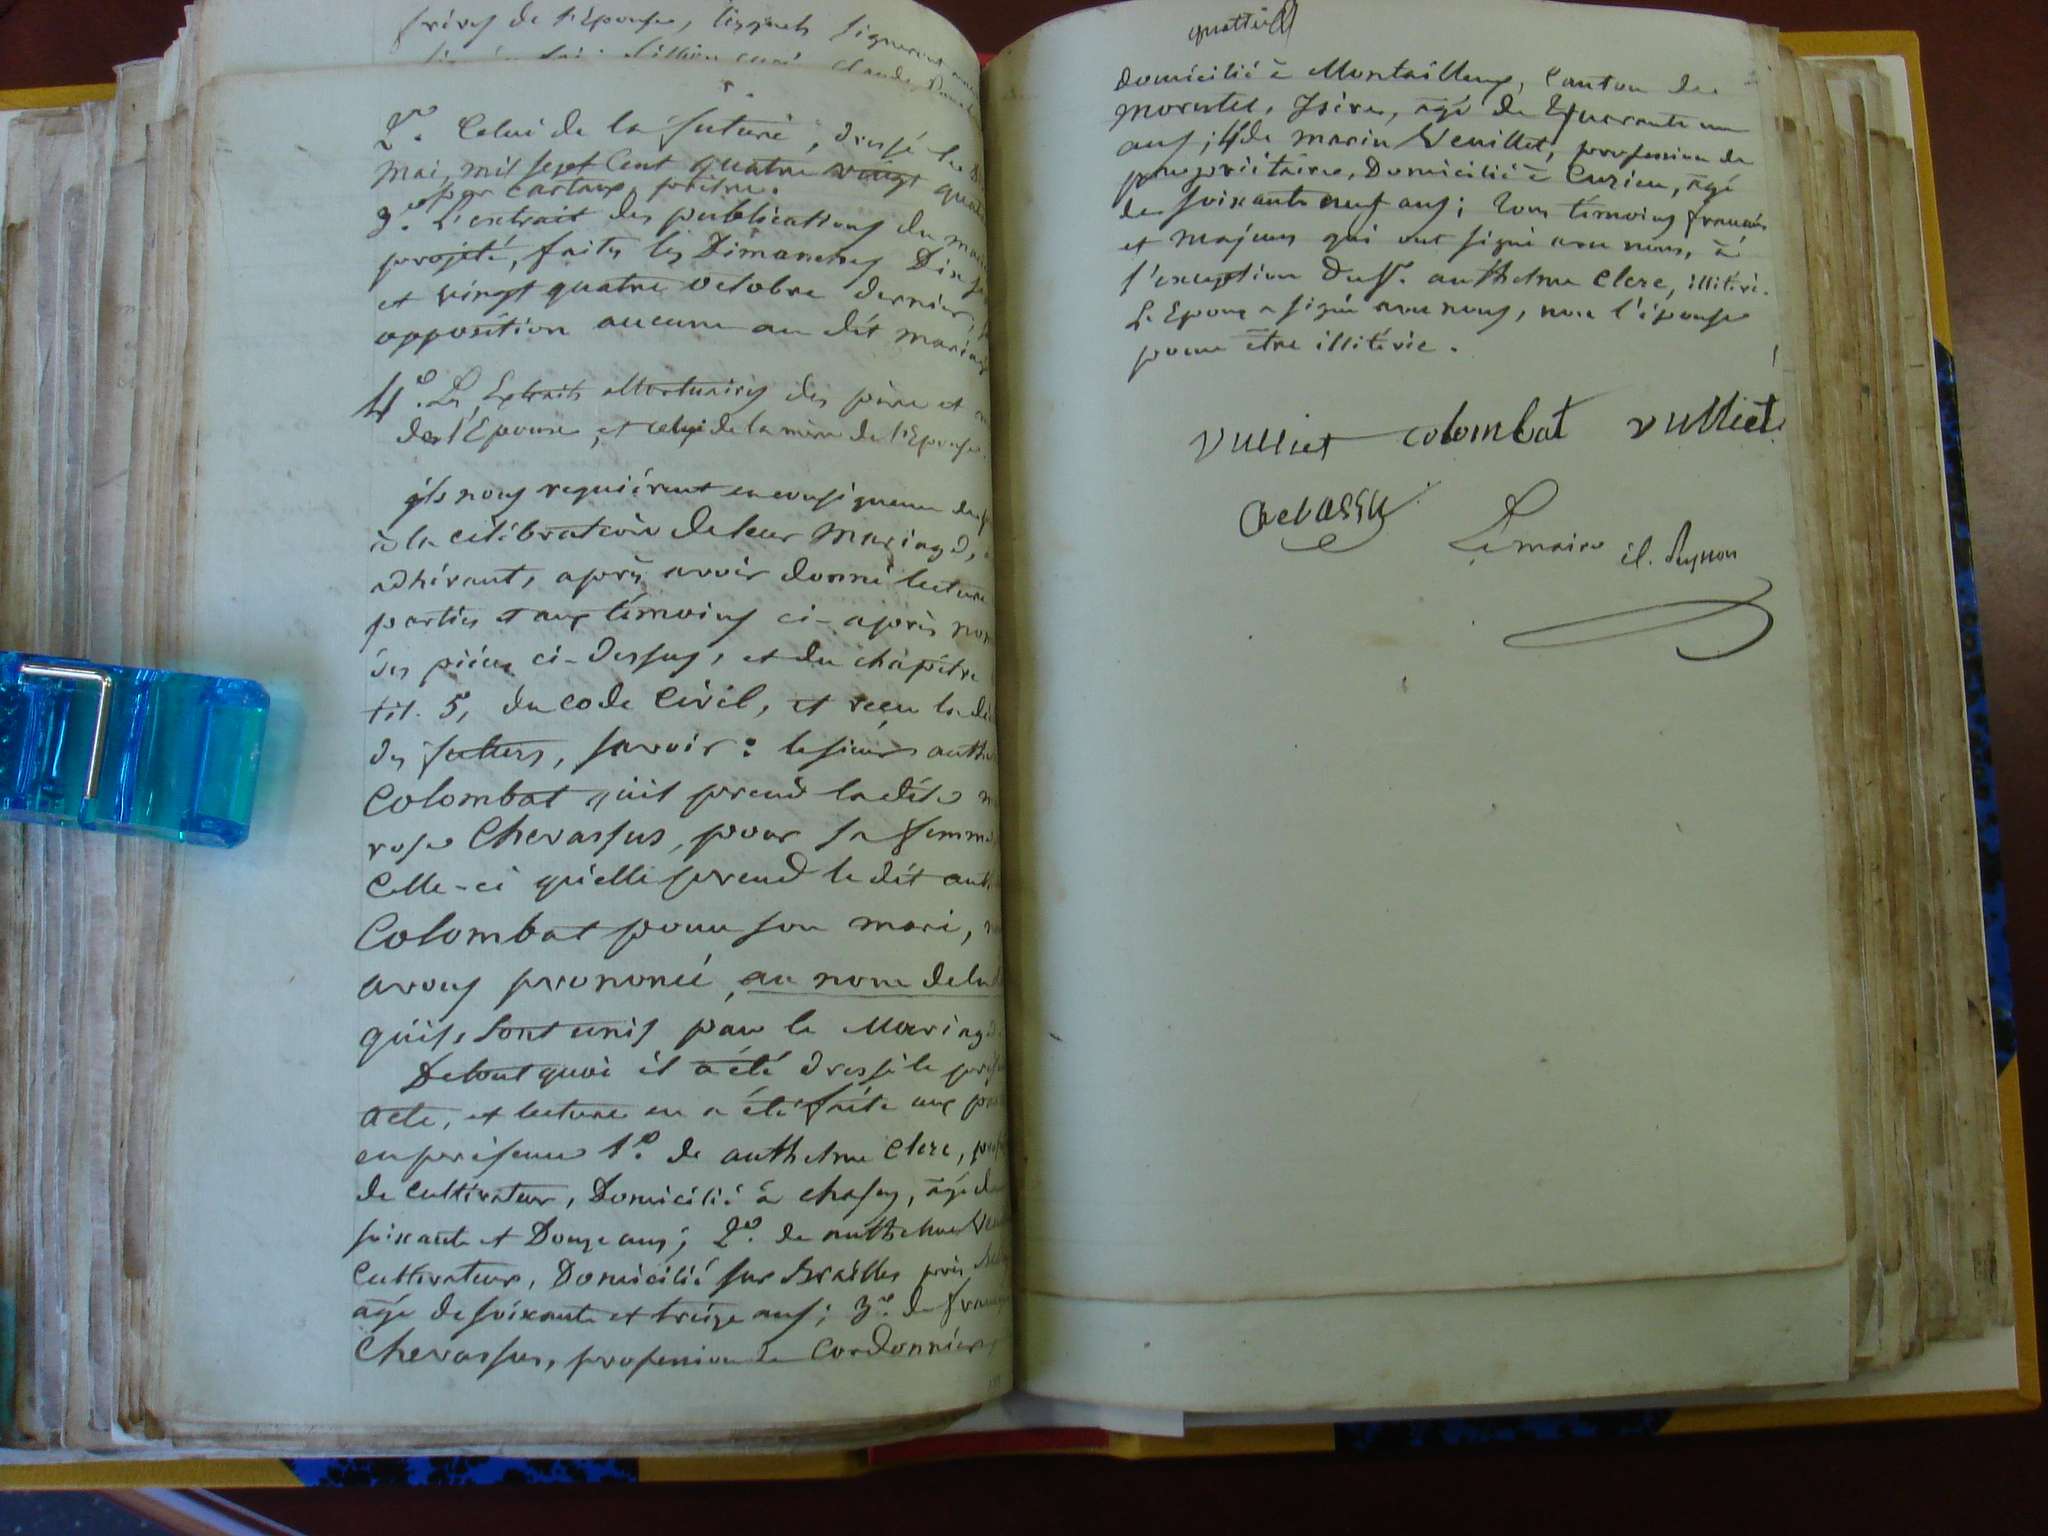 frères de l'Epouse, lesquels signeront
2.º Celui de la future, dressé le
mai, mil sept Cent quatre vingt quat
par Cartaux, prêtre.
3.º L'extrait des publications du mar
projeté, faites les Dimanches Dix se
et vingt quatre octobre dernier,
opposition aucune au dit mariag
4.º Les Extraits Mortuaires des père et
de l'Epoux, et celui de la mère de l'Epouse.
ils nous requièrent en conséquence de
à la célébration de leur Mariage,
adhérant, après avoir donné lecture
parties et aux témoins ci-après nom
des pièces ci-dessus, et du chapitre
tit. 5, du Code Civil, et reçu la dé
des futurs, savoir : le sieur anth
Colombat qu'il prend la dite
rose Chevassus, pour sa femme
Celle-ci qu'elle prend le dit anth
Colombat pour son mari,
avons prononcé, au nom de la
qu'ils sont unis par le Mariage
De tout quoi il a été dressé le prés
acte, et lecture en a été faite aux pa
en présence 1.º de anthelme Clerc, prof
de Cultivateur, Domicilié à chasey, âgé de
soixante et Douze ans; 2.º de anthelme
Cultivateur, Domicilié sur Brailles près
âgé de soixante et treize ans; 3.º de franç
Chevassus, profession de Cordonnier,
quatre
domicilié à Montailleux, Canton de
morestel, Isère, âgé de Quarante un
ans; 4º de marin Veuillet, profession de
propriétaire, Domicilié à Curieu, âgé
de soixante neuf ans; tous témoins français
et majeurs qui ont signé avec nous, à
l'exception du Sr. anthelme Clerc, illitéré.
L'Epoux a signé avec nous, non l'épouse
pour être illitérée.
vulliet colombat vulliet
chevassu Le maire cl. Peysson